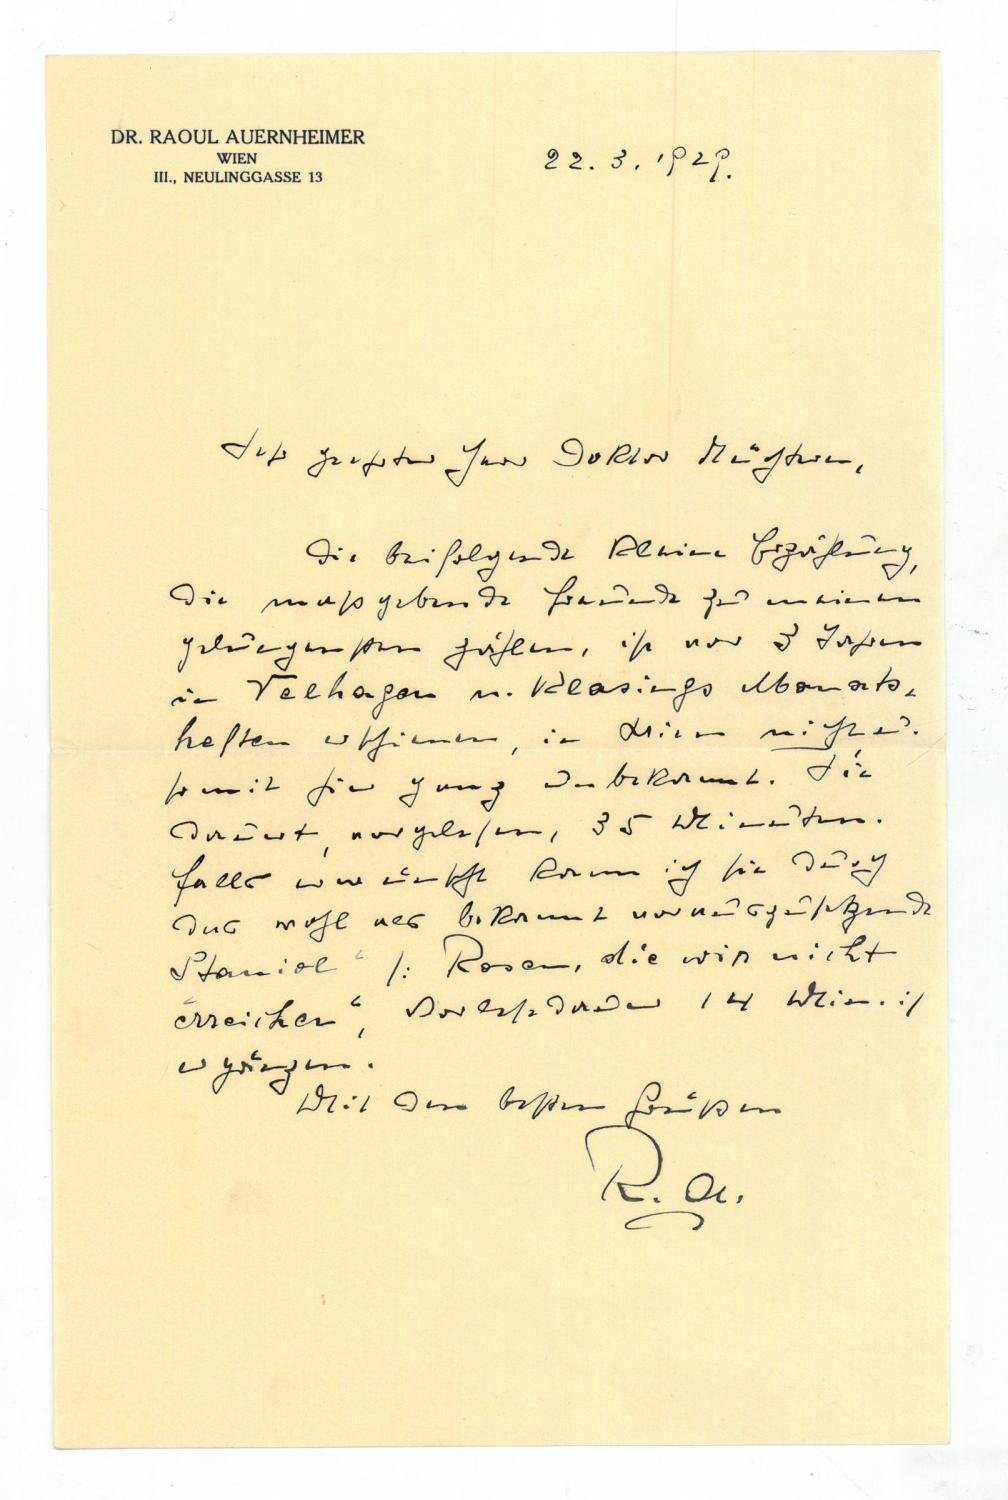 DR. RAOUL AUERNHEIMER
WIEN
III., NEULINGGASSE 13
22. 3. 1929.
Sehr geehrter Herr Doktor
Die beifolgende kleine Erzählung,
die maßgebende Freunde zu meinen
gelungensten zählen, ist vor 3 Jahren
in Velhagen u. Klasings Monats-
heften erschienen, in Wien nicht u.
somit hier ganz unbekannt. Sie
dauert, vorgelesen, 35 Minuten.
falls erwünscht kann ich sie durch
das wohl als bekannt vorauszusetzende
Staniol " /: Rosen, die wir nicht
erreichen",  14 Min.
ergänzen.
Mit den besten Grüßen
R. A.